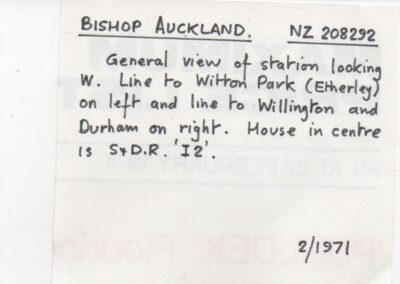 BISHOP AUCKLAND. NZ 208292
General view of station looking
W. Line to Witton Park (Etherley)
on left and line to Willington and
Durham on right. House in centre
is S&D.R. 'I2'.
2/1971